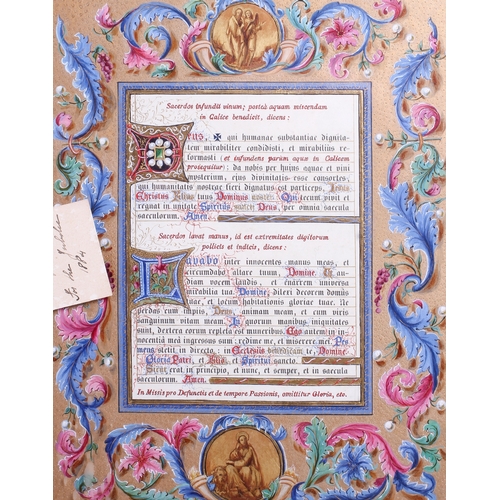 Sacerdos infundit vinum; posteà aquam miscendam
in Calice benedicit, dicens:
Deus, ✠ qui humanae substantiae dignita-
tem mirabiliter condidisti, et mirabilius re-
formasti (et infundens parum aquæ in Calicem
prosequitur): da nobis per hujus aquae et vini
mysterium, ejus divinitatis esse consortes,
qui humanitatis nostrae fieri dignatus est particeps, Jesus
Christus Filius tuus Dominus noster: Qui tecum vivit et
regnat in unitate Spiritus Sancti Deus, per omnia saecula
saeculorum. Amen.
Sacerdos lavat manus, id est extremitates digitorum
pollicis et indicis, dicens:
Lavabo inter innocentes manus meas, et
circumdabo altare tuum, Domine. Ut au-
diam vocem laudis, et enarrem universa
mirabilia tua. Domine, dilexi decorem domus
tuae, et locum habitationis gloriae tuae. Ne
perdas cum impiis, Deus, animam meam, et cum viris
sanguinum vitam meam. In quorum manibus iniquitates
sunt, dextera eorum repleta est muneribus. Ego autem in in-
nocentia mea ingressus sum: redime me, et miserere mei. Pes
meus stetit in directo: in Ecclesiis benedicam te, Domine.
Gloria Patri, et Filio, et Spiritui Sancto.
Sicut erat in principio, et nunc, et semper, et in saecula
saeculorum. Amen.
In Missis pro Defunctis et de tempore Passionis, omittitur Gloria, etc.